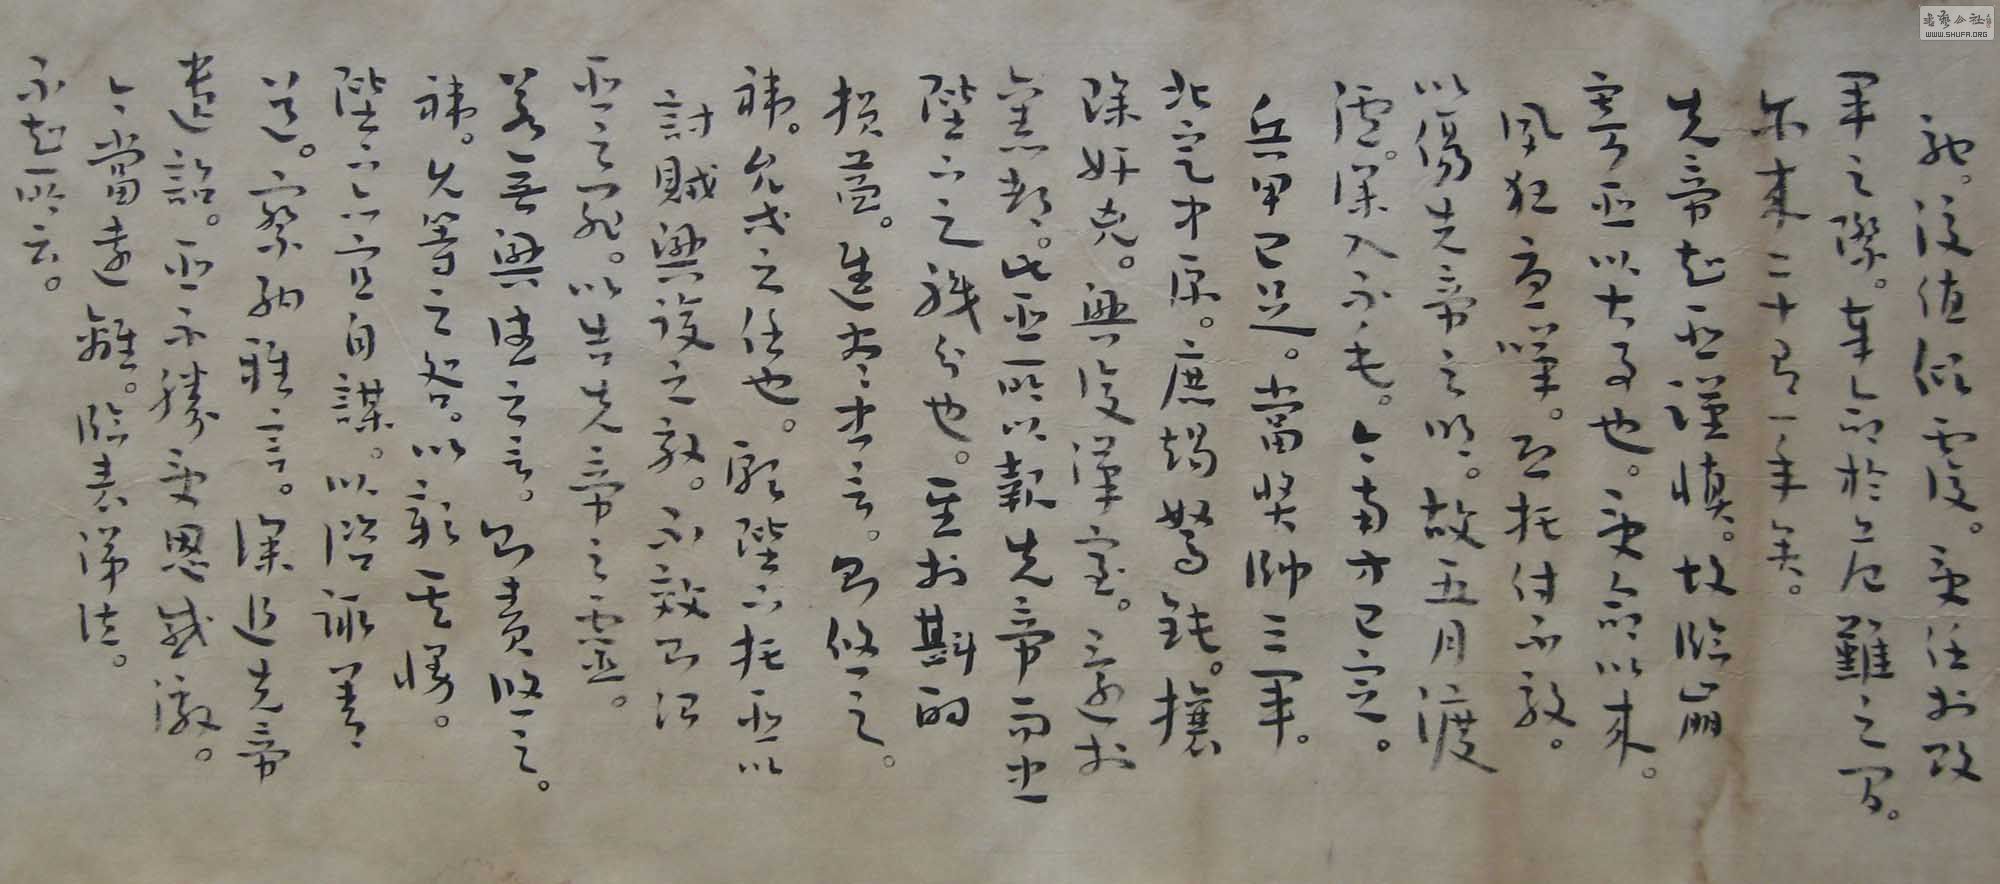 驰。後值倾覆。受任於败
軍之際。奉命於危難之间。
尔来二十有一年矣。
先帝知臣谨慎。故临崩
寄臣以大事也。受命以来。
夙夜憂嘆。恐托付不效。
以傷先帝之明。故五月渡
瀘。深入不毛。今南方已定。
兵甲已足。當奖帥三軍。
北定中原。庶竭駑钝。攘
除奸凶。興復漢室。還於
舊都。此臣所以報先帝而忠
陛下之職分也。至於斟酌
损益。進盡忠言。則攸之。
祎。允之任也。願陛下托臣以
討賊興復之效。不效則治
臣之罪。以告先帝之靈。
若無興德之言。則責攸之。
祎。允等之咎。以彰其慢。
陛下亦宜自謀。以谘諏善
道。察納雅言。深追先帝
遺詔。臣不勝受恩感激。
今當遠離。临表涕泣。
不知所云。
書藝公社
WWW.SHUFA.ORG